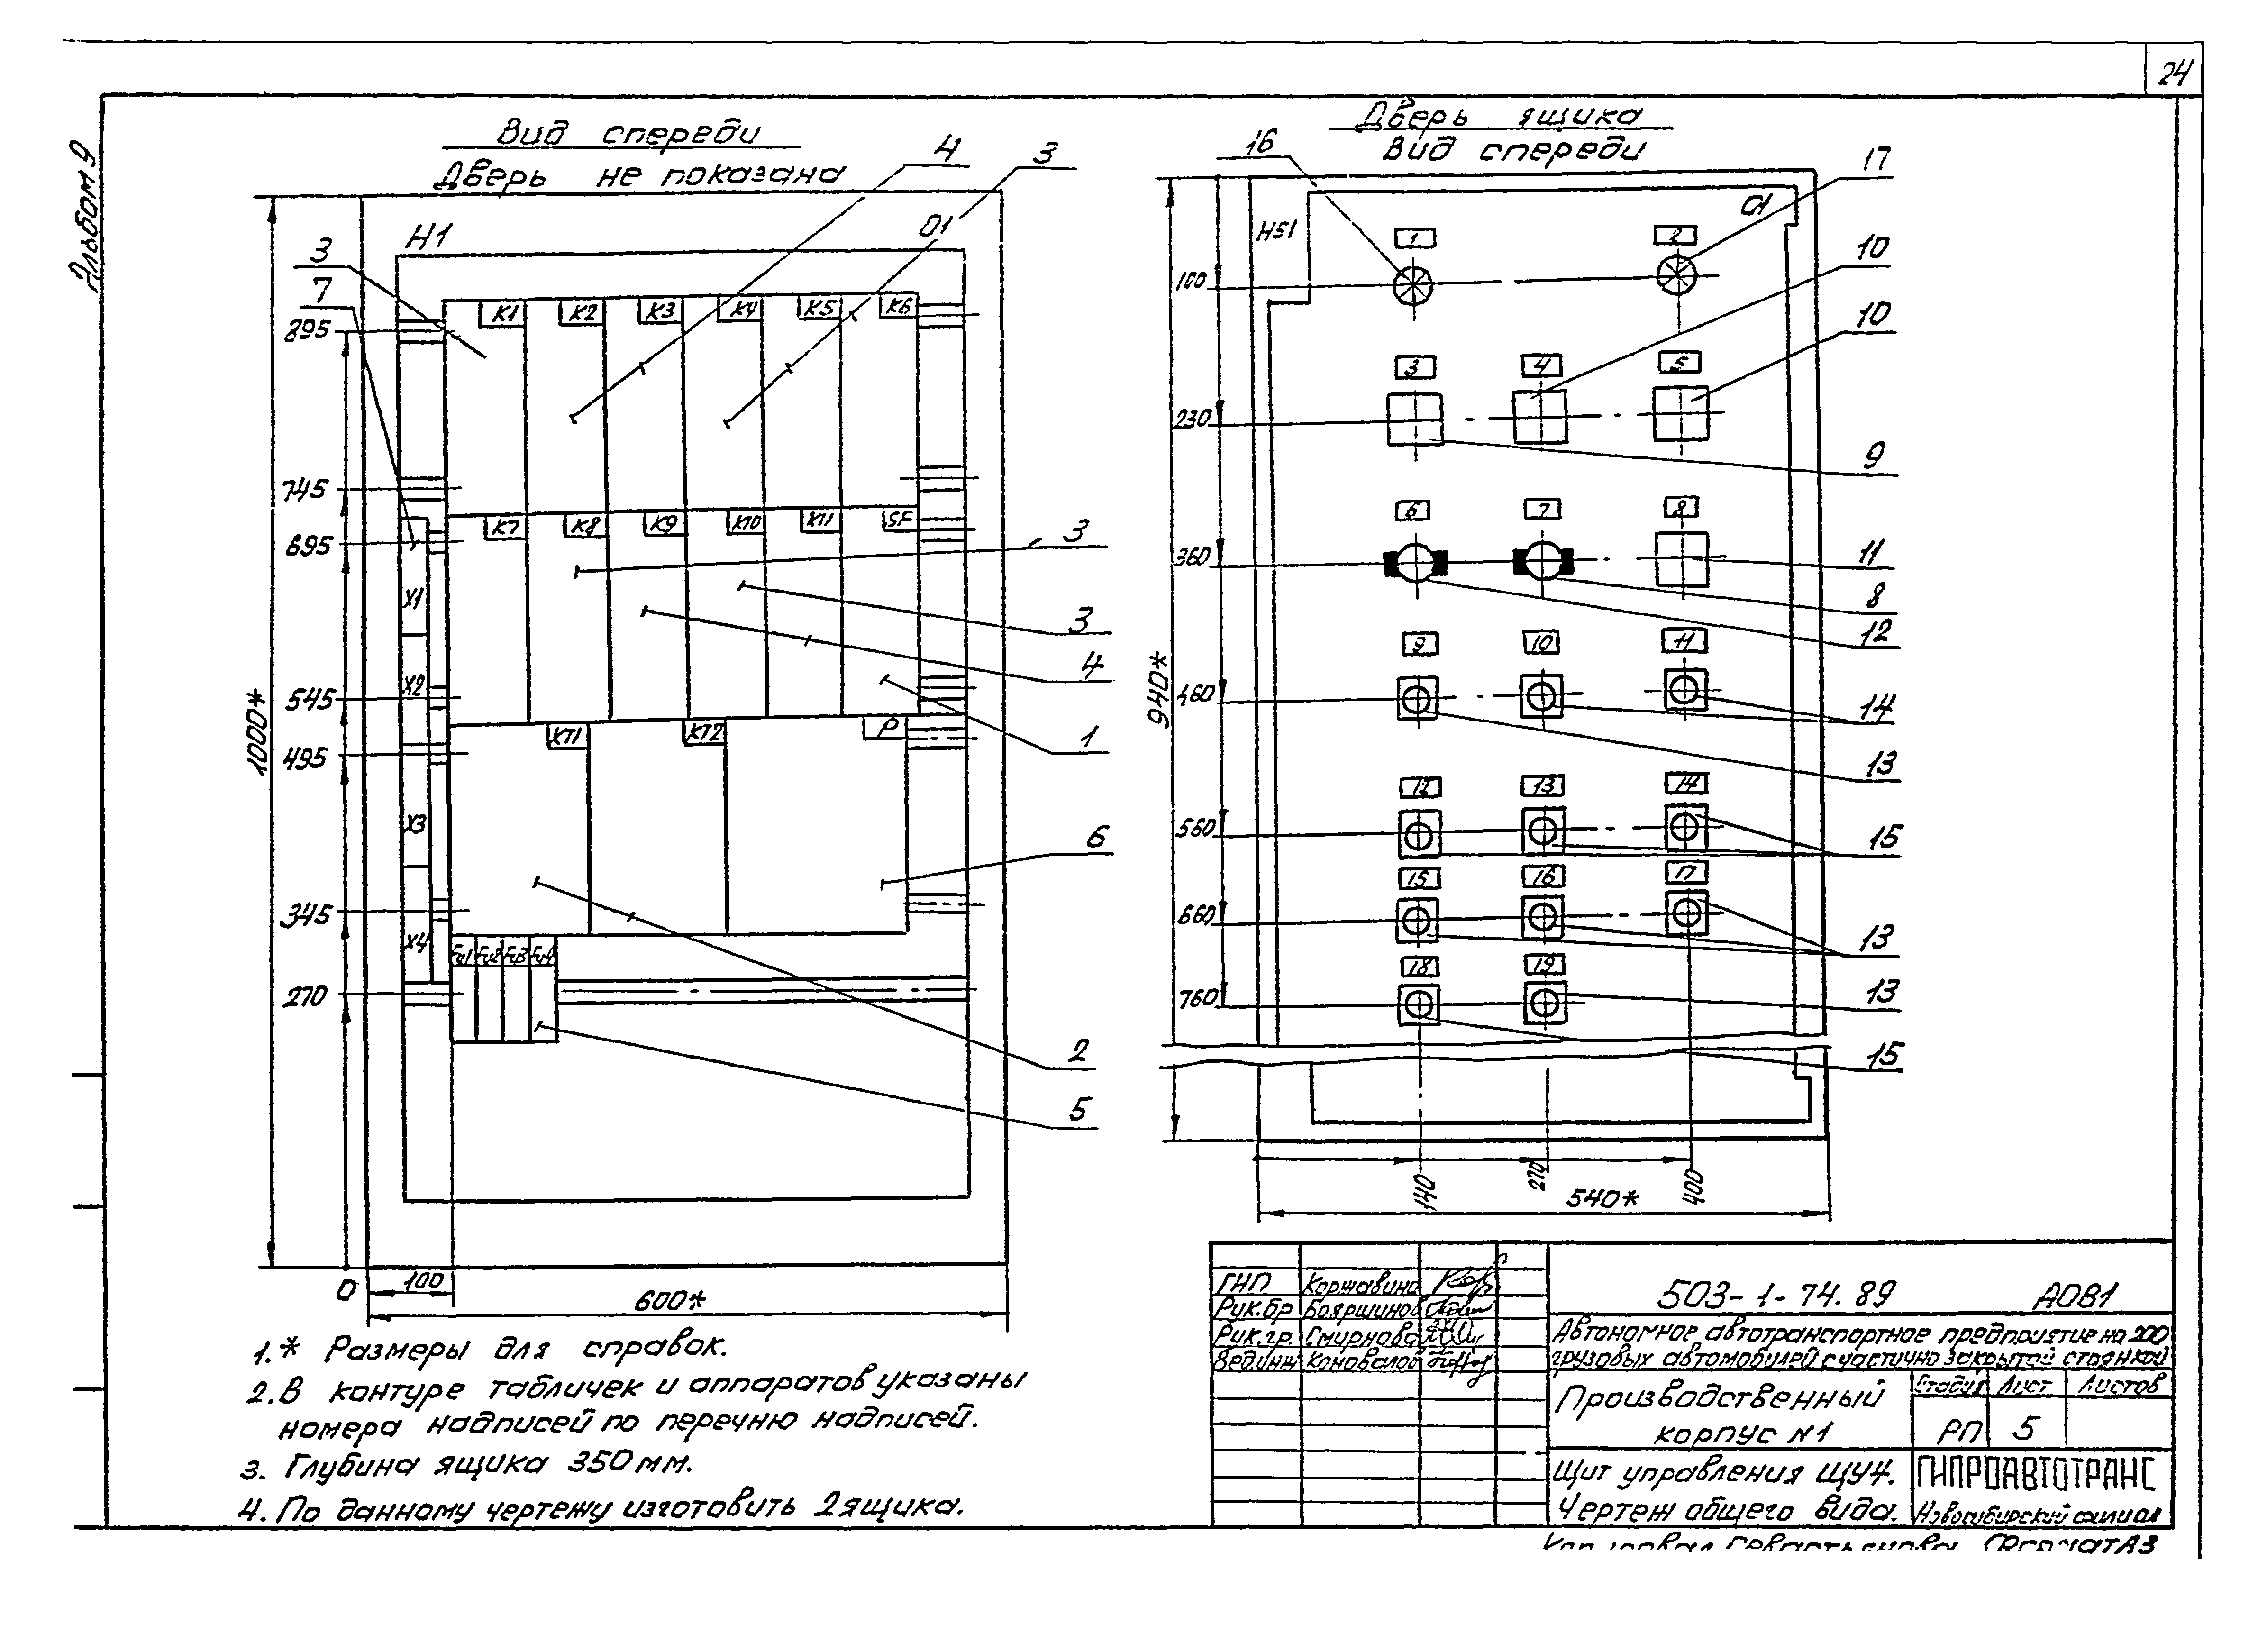 24
Альбом 9
Вид спереди
Дверь не показана
4
3
Н1
01
3
7
К1 К2 К3 К4 К5 К6
895
745
К7 К8 К9 К10 К11 SF
695
3
Х1
3
Х2
4
545
1000*
КТ1 КТ2 Р
1
495
Х3
6
345
Х4
Fu1 Fu2 Fu3 Fu4
270
2
5
0
100
600*
Дверь ящика
Вид спереди
16
17
Н51
01
1 2
10
100
10
3 4 5
230
9
6 7 8
360
11
8
12
9 10 11
940*
460
14
13
12 13 14
560
15
15 16 17
660
13
18 19
13
760
15
140
270
400
540*
1.* Размеры для справок.
2. В контуре табличек и аппаратов указаны
номера надписей по перечню надписей.
3. Глубина ящика 350 мм.
4. По данному чертежу изготовить 2 ящика.
ГНП Коржавина
Рук.бр Бояршинов
Рук.гр. Смирнова
Вед.инж Коновалов
503-1-74.89 АОВ1
Автономное автотранспортное предприятие на 200
грузовых автомобилей с частично закрытой стоянкой
Производственный
корпус №1
Стадия Лист Листов
РП 5
Щит управления ЩУ4.
Чертеж общего вида.
ГИПРОАВТОТРАНС
Новосибирский филиал
Копировал Севастьянова Формат А3